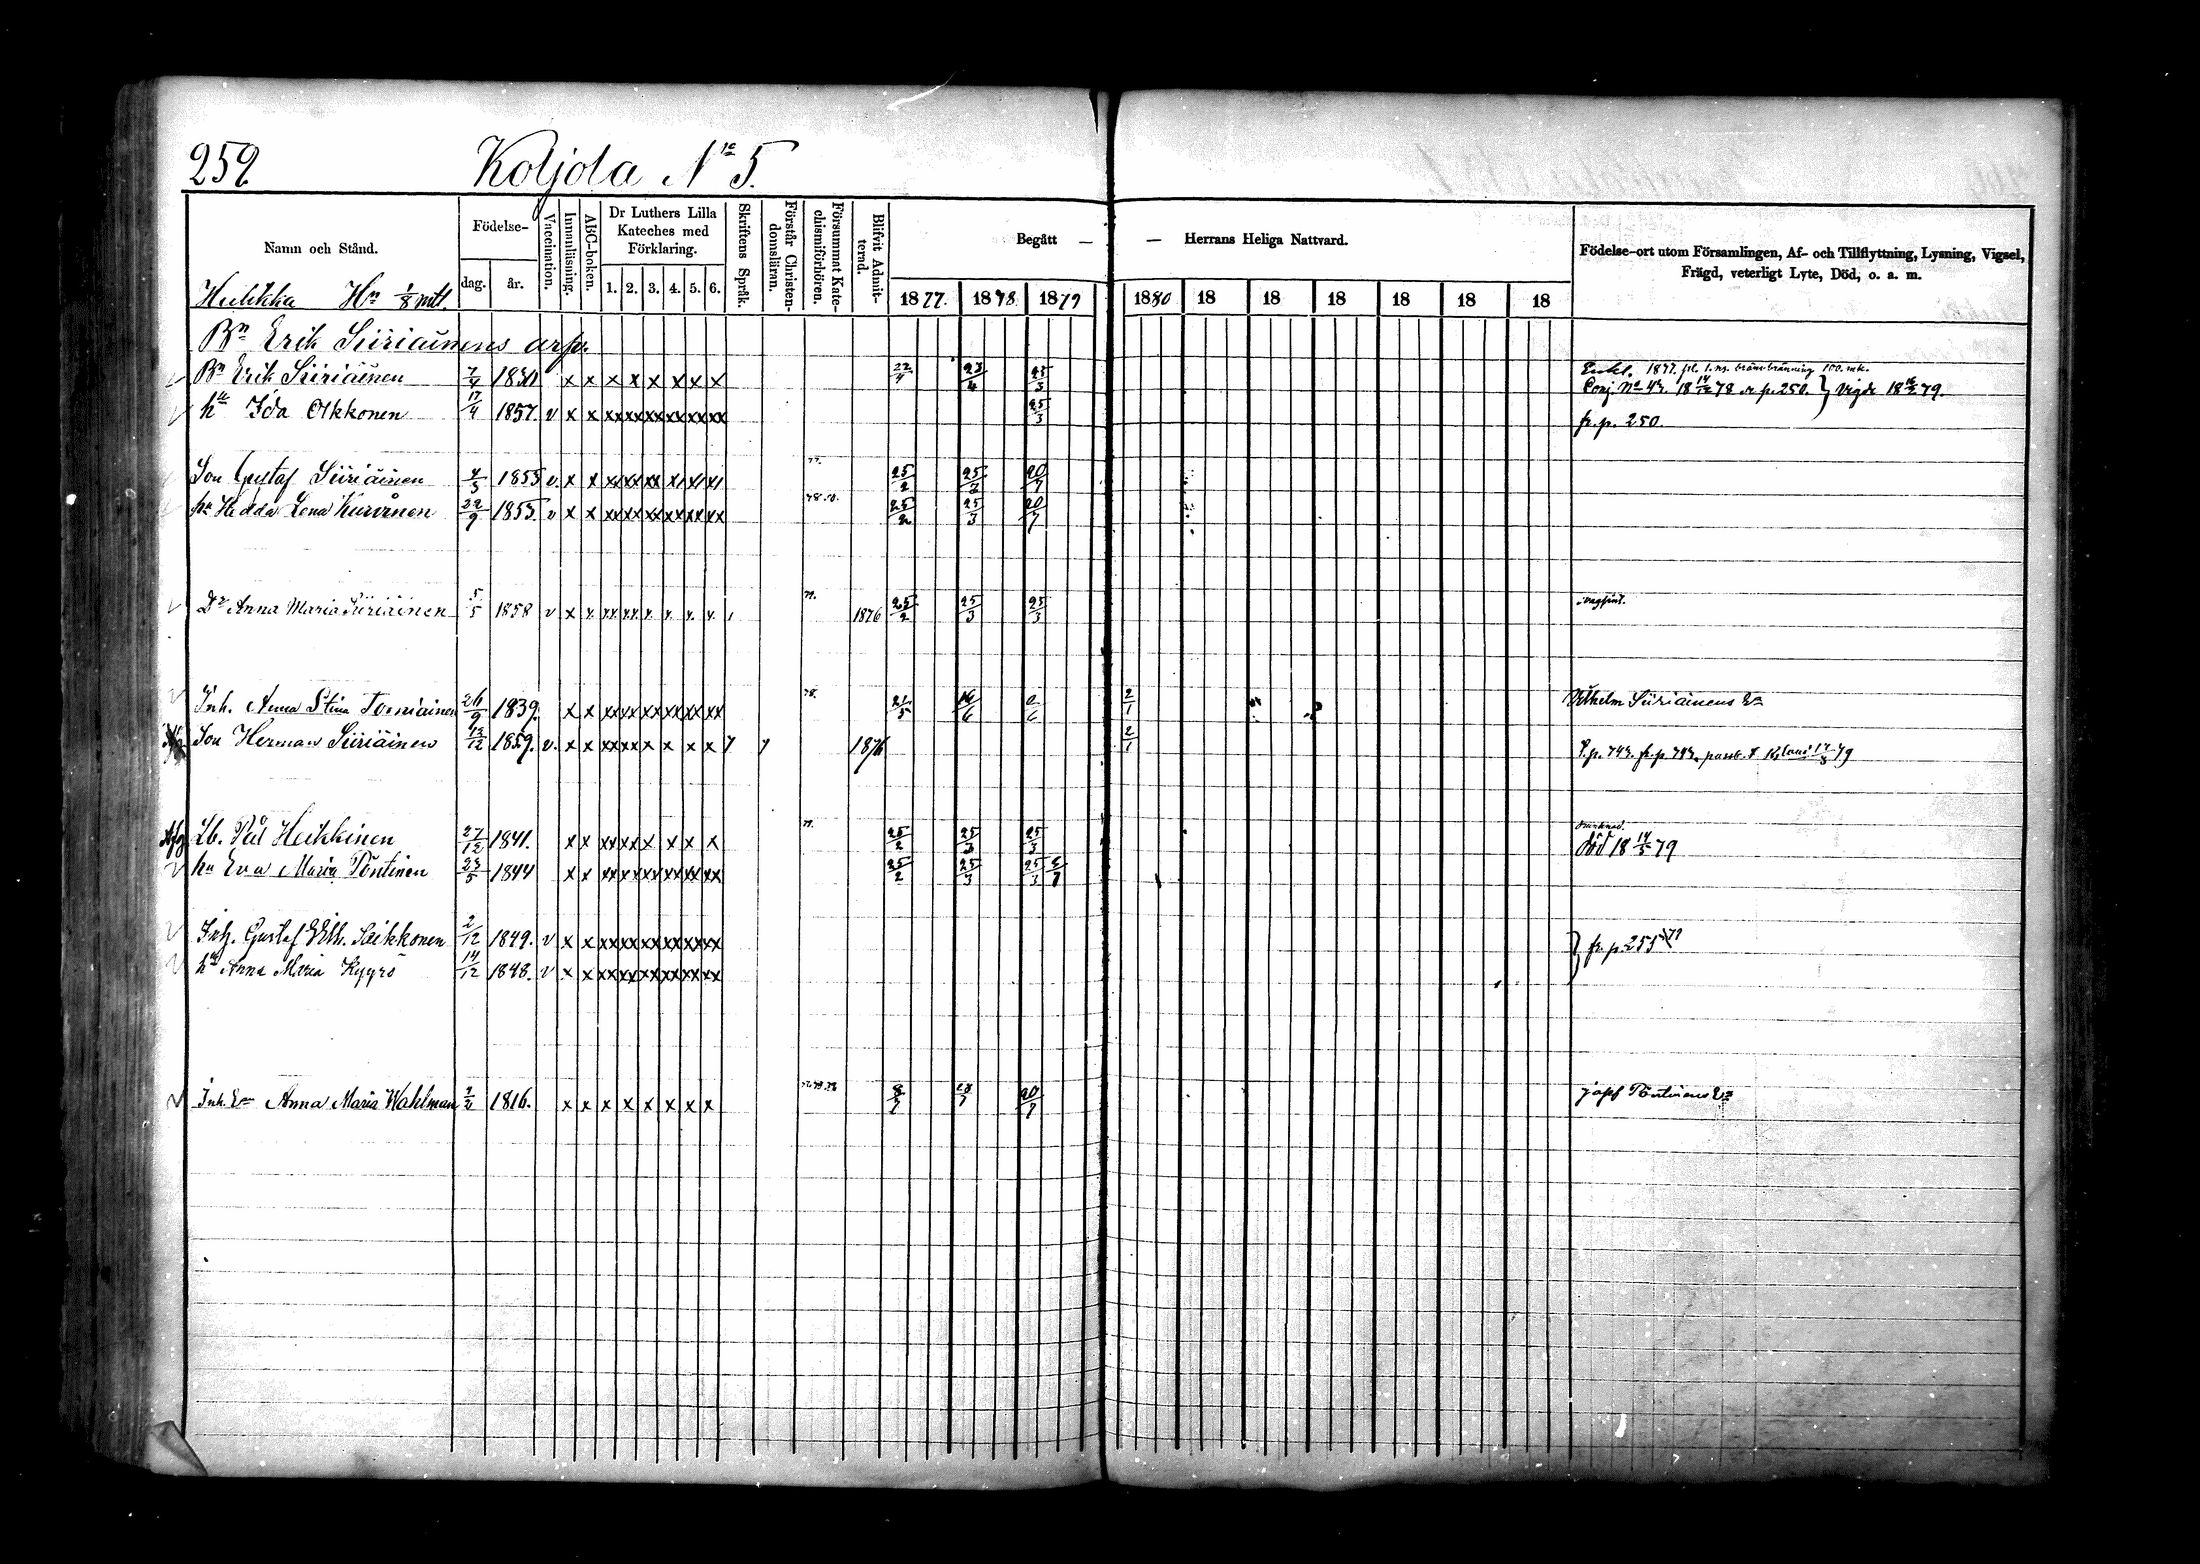 252 Koljola No 5.
Namn och Stånd. Födelse- dag. år. Vaccination. Innanläsning. ABC-boken. Dr Luthers Lilla Kateches med Förklaring. 1. 2. 3. 4. 5. 6. Skriftens Språk. Förstår Christen-domsläran. Försummat Kate-chismiförhören. Blifvit Admit-terad. Begått — — Herrans Heliga Nattvard. Födelse-ort utom Församlingen, Af- och Tillflyttning, Lysning, Vigsel, Frägd, veterligt Lyte, Död, o. a. m.
1877. 1878. 1879 1880 18 18 18 18 18 18
Hn 1/8 mtl.
Bn Erik Siiriäinens
Bn Erik Siiriäinen 7/4 1830 x x x x x x x x 22/4 23/4 25/3 1877
Conj. No 47. 18 78 p. 250. } Vigde 18 79.
Ida Olkkonen 17/4 1857. v x x xx xx xx xx xx xx 25/3 fr. p. 250
Son Gustaf Siiriäinen 4/5 1855 v. x x 77. 25/2 25/3 20/7
hu Hedda Lena 22/9 1855. v x x xx xx xx xx xx xx 25/2 25/3 20/7
Dr Anna Maria Siiriäinen 5/5 1858 v x x. 1876 25/2 25/3 25/3
Inh. Anna Stina Torniainen 26/9 1839. x x xx xx xx xx xx xx 78. 2/1 Vilhelm Siiriäinens Ea
Son Herman Siiriäinen 1859. v. x x xx xx x x x x 7 7 1876 2/1 79
Lb. Pål Heikkinen 27/12 1841. x x xx xx x x x x 25/2 25/3 25/3 död 18 14/5 79
hu Eva Maria Pöntinen 23/5 1844 x x xx xx xx xx xx xx 25/2 25/3 25/3
Inh. Gustaf Vilh. Saikkonen 2/12 1849. v x x xx xx xx xx xx xx } fr. p. 251
Anna Maria Kyyrö 14/12 1848. v x x xx xx xx xx xx xx
Inh. Ea Anna Maria Wahlman 1816. x x x x x x x x 20/7 Pöntinens Ea